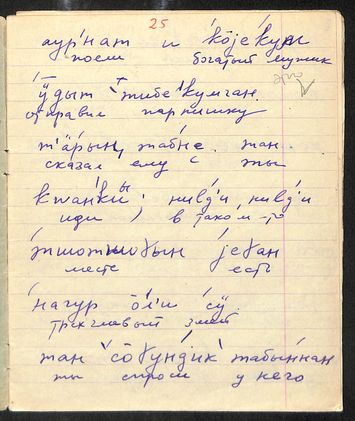 25
аур́нат и кӧjе́кум
поет богатый мужик
ӱ́дыт тибе́кумган.
отправил парнишку это
тӓ́рын, табне. тан..
сказал ему с ты
кwанкы́; нивд́и, нивд́и
иди, в таком-то
е́тан
месте есть
на́гур о́лы сӱ.
трехглавый змей
тан со́гунджик табыннан
ты спроси у него